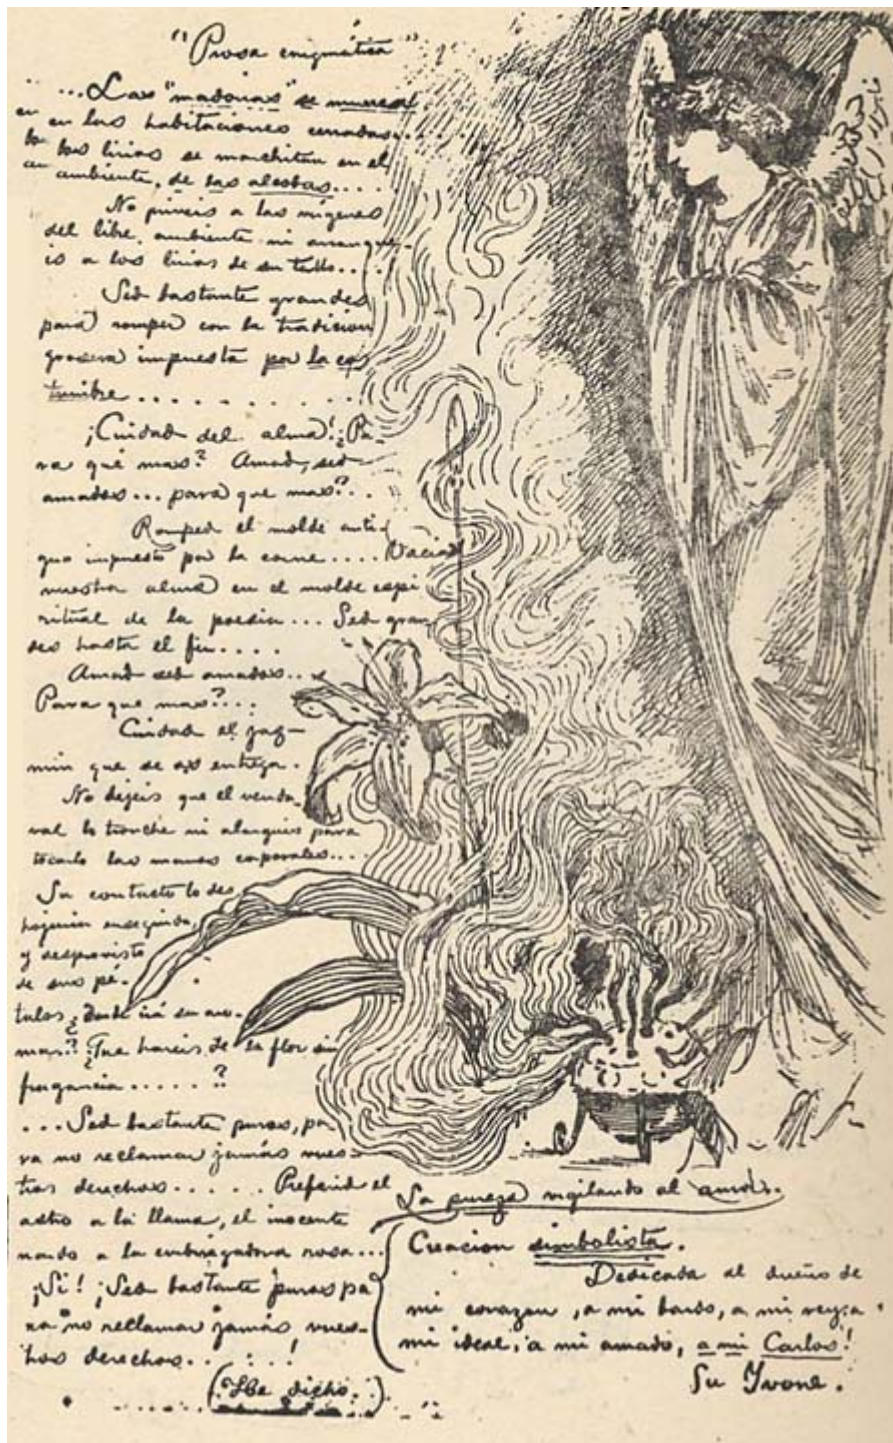 "Prosa enigmática"
...Las "madonas" se mueren
en las habitaciones cerradas....
los lirios se marchitan en el
ambiente, de las alcobas....
No priveis a las virgenes
del libre ambiente ni arranqu-
eis a los lirios de su tallo....
Sed bastante grandes
para romper con la tradicion
grosera impuesta por la cos
tumbre..........
¡Cuidad del alma! ¿Pa-
ra qué mas? Amad, sed
amados... para que mas?..
Romped el molde anti
guo impuesto por la carne.... Vaciad
vuestra alma en el molde espi
ritual de la poesia... Sed gran
des hasta el fin....
Amad sed amados...
Para que mas?...
Cuidad el jaz-
min que se os entrega.
No dejeis que el venda
val lo tronche ni alargueis para
tocarlo las manos corporales...
Su contacto lo des
hojaria enseguida,
y desprovisto
de sus pé-
talos ¿Donde irá su aro-
mas? ¿Que hareis de la flor sin
fragancia.....?
...Sed bastante puros, pa
ra no reclamar jamás vues-
tros derechos..... Preferid el
astro a la llama, el inocente
nardo a la embriagadora rosa...
¡Si! ¡Sed bastante puros pa
ra no reclamar jamás, vues-
tros derechos......!
(He dicho.)
La pureza vigilando al amor.
Creacion simbolista.
Dedicada al dueño de
mi corazon, a mi bardo, a mi rey, a
mi ideal, a mi amado, a mi Carlos!
Su Yvone.